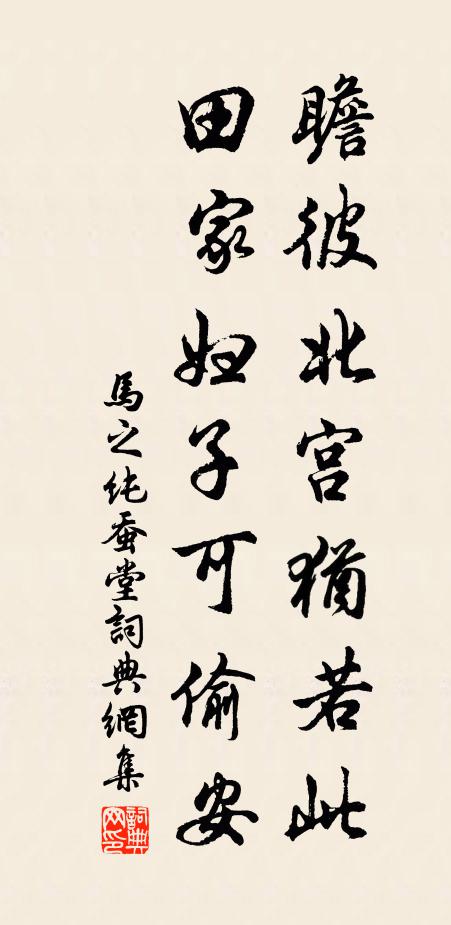 瞻彼北宫猶若此
田家妇子可偷安
馬之纯蚕堂詞典網集
詞典网印